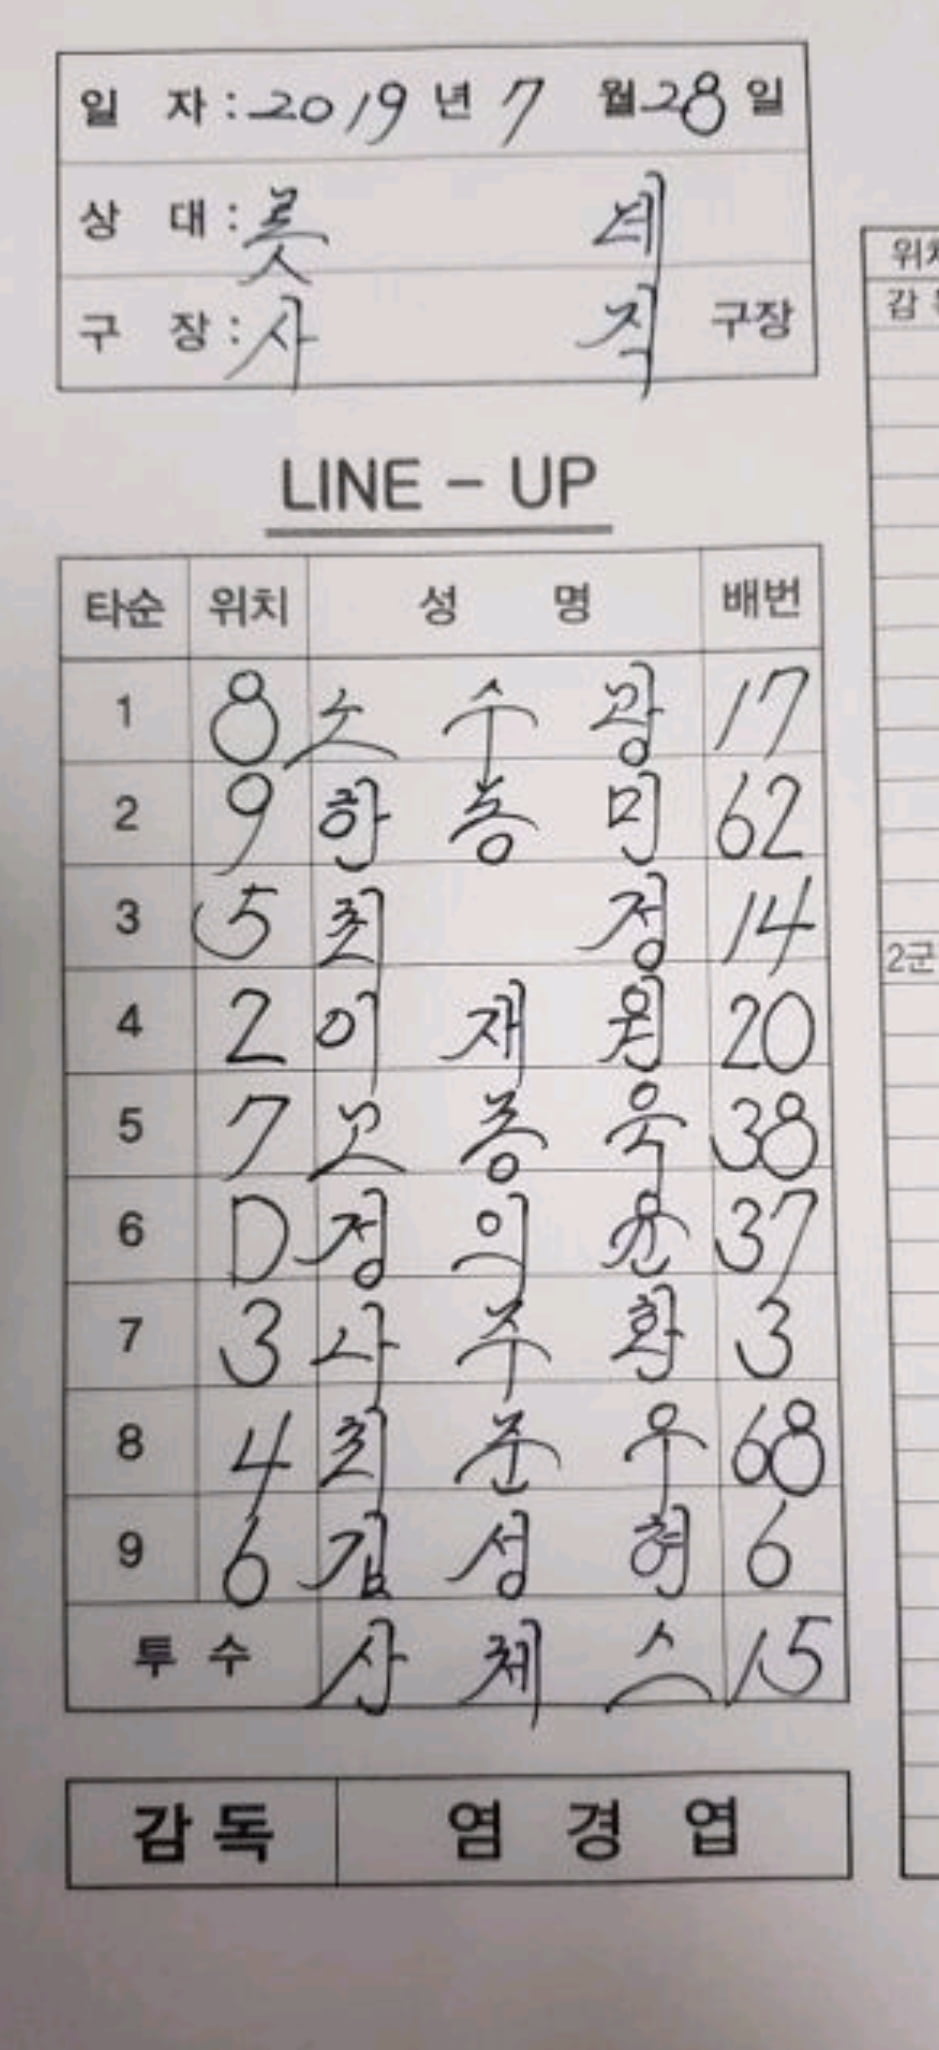 일 자 : 2019 년 7 월 28 일
상 대 : 롯 데
구 장 : 사 직 구장
LINE - UP
타순 위치 성 명 배번
1 8 노 수 광 17
2 9 한 동 민 62
3 5 최 정 14
4 2 이 재 원 20
5 7 고 종 욱 38
6 D 정 의 윤 37
7 3 나 주 환 3
8 4 최 준 우 68
9 6 김 성 현 6
투 수 산 체 스 15
감독 염 경 엽
감
2군